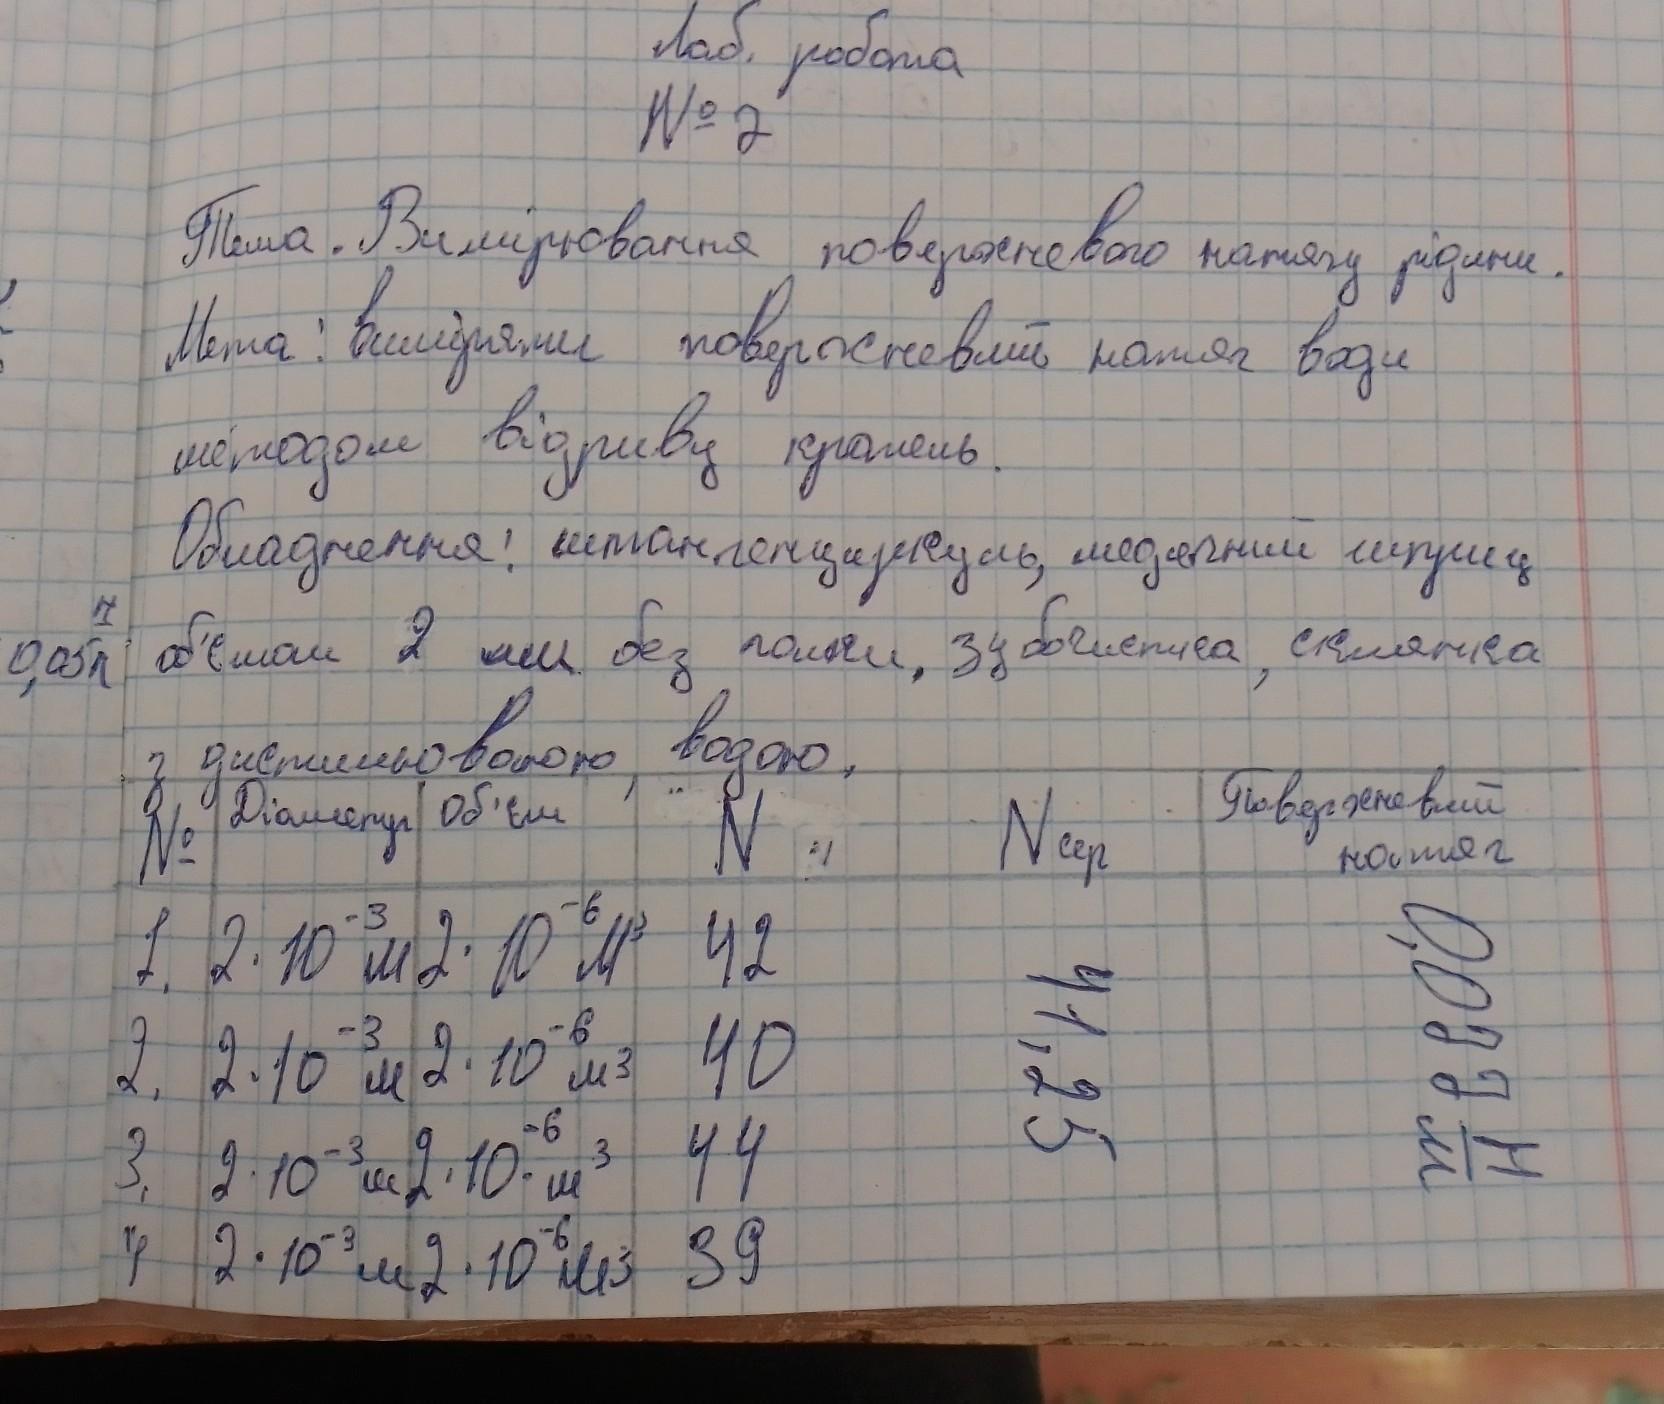 Лаб. робота
№ 2
Тема. Вимірювання поверхневого натягу рідини.
Мета: виміряти поверхневий натяг води
методом відриву крапель.
Обладнення: штангенциркуль, медичний шприц
об'ємом 2 мл без голки, зубочистка, склянка
з дистильованою водою.
№ Діаметр Об'єм N Nсер Поверхневий натяг
1. 2·10⁻³м 2·10⁻⁶м³ 42
2. 2·10⁻³м 2·10⁻⁶м³ 40
3. 2·10⁻³м 2·10⁻⁶м³ 44
4 2·10⁻³м 2·10⁻⁶м³ 39
41,25